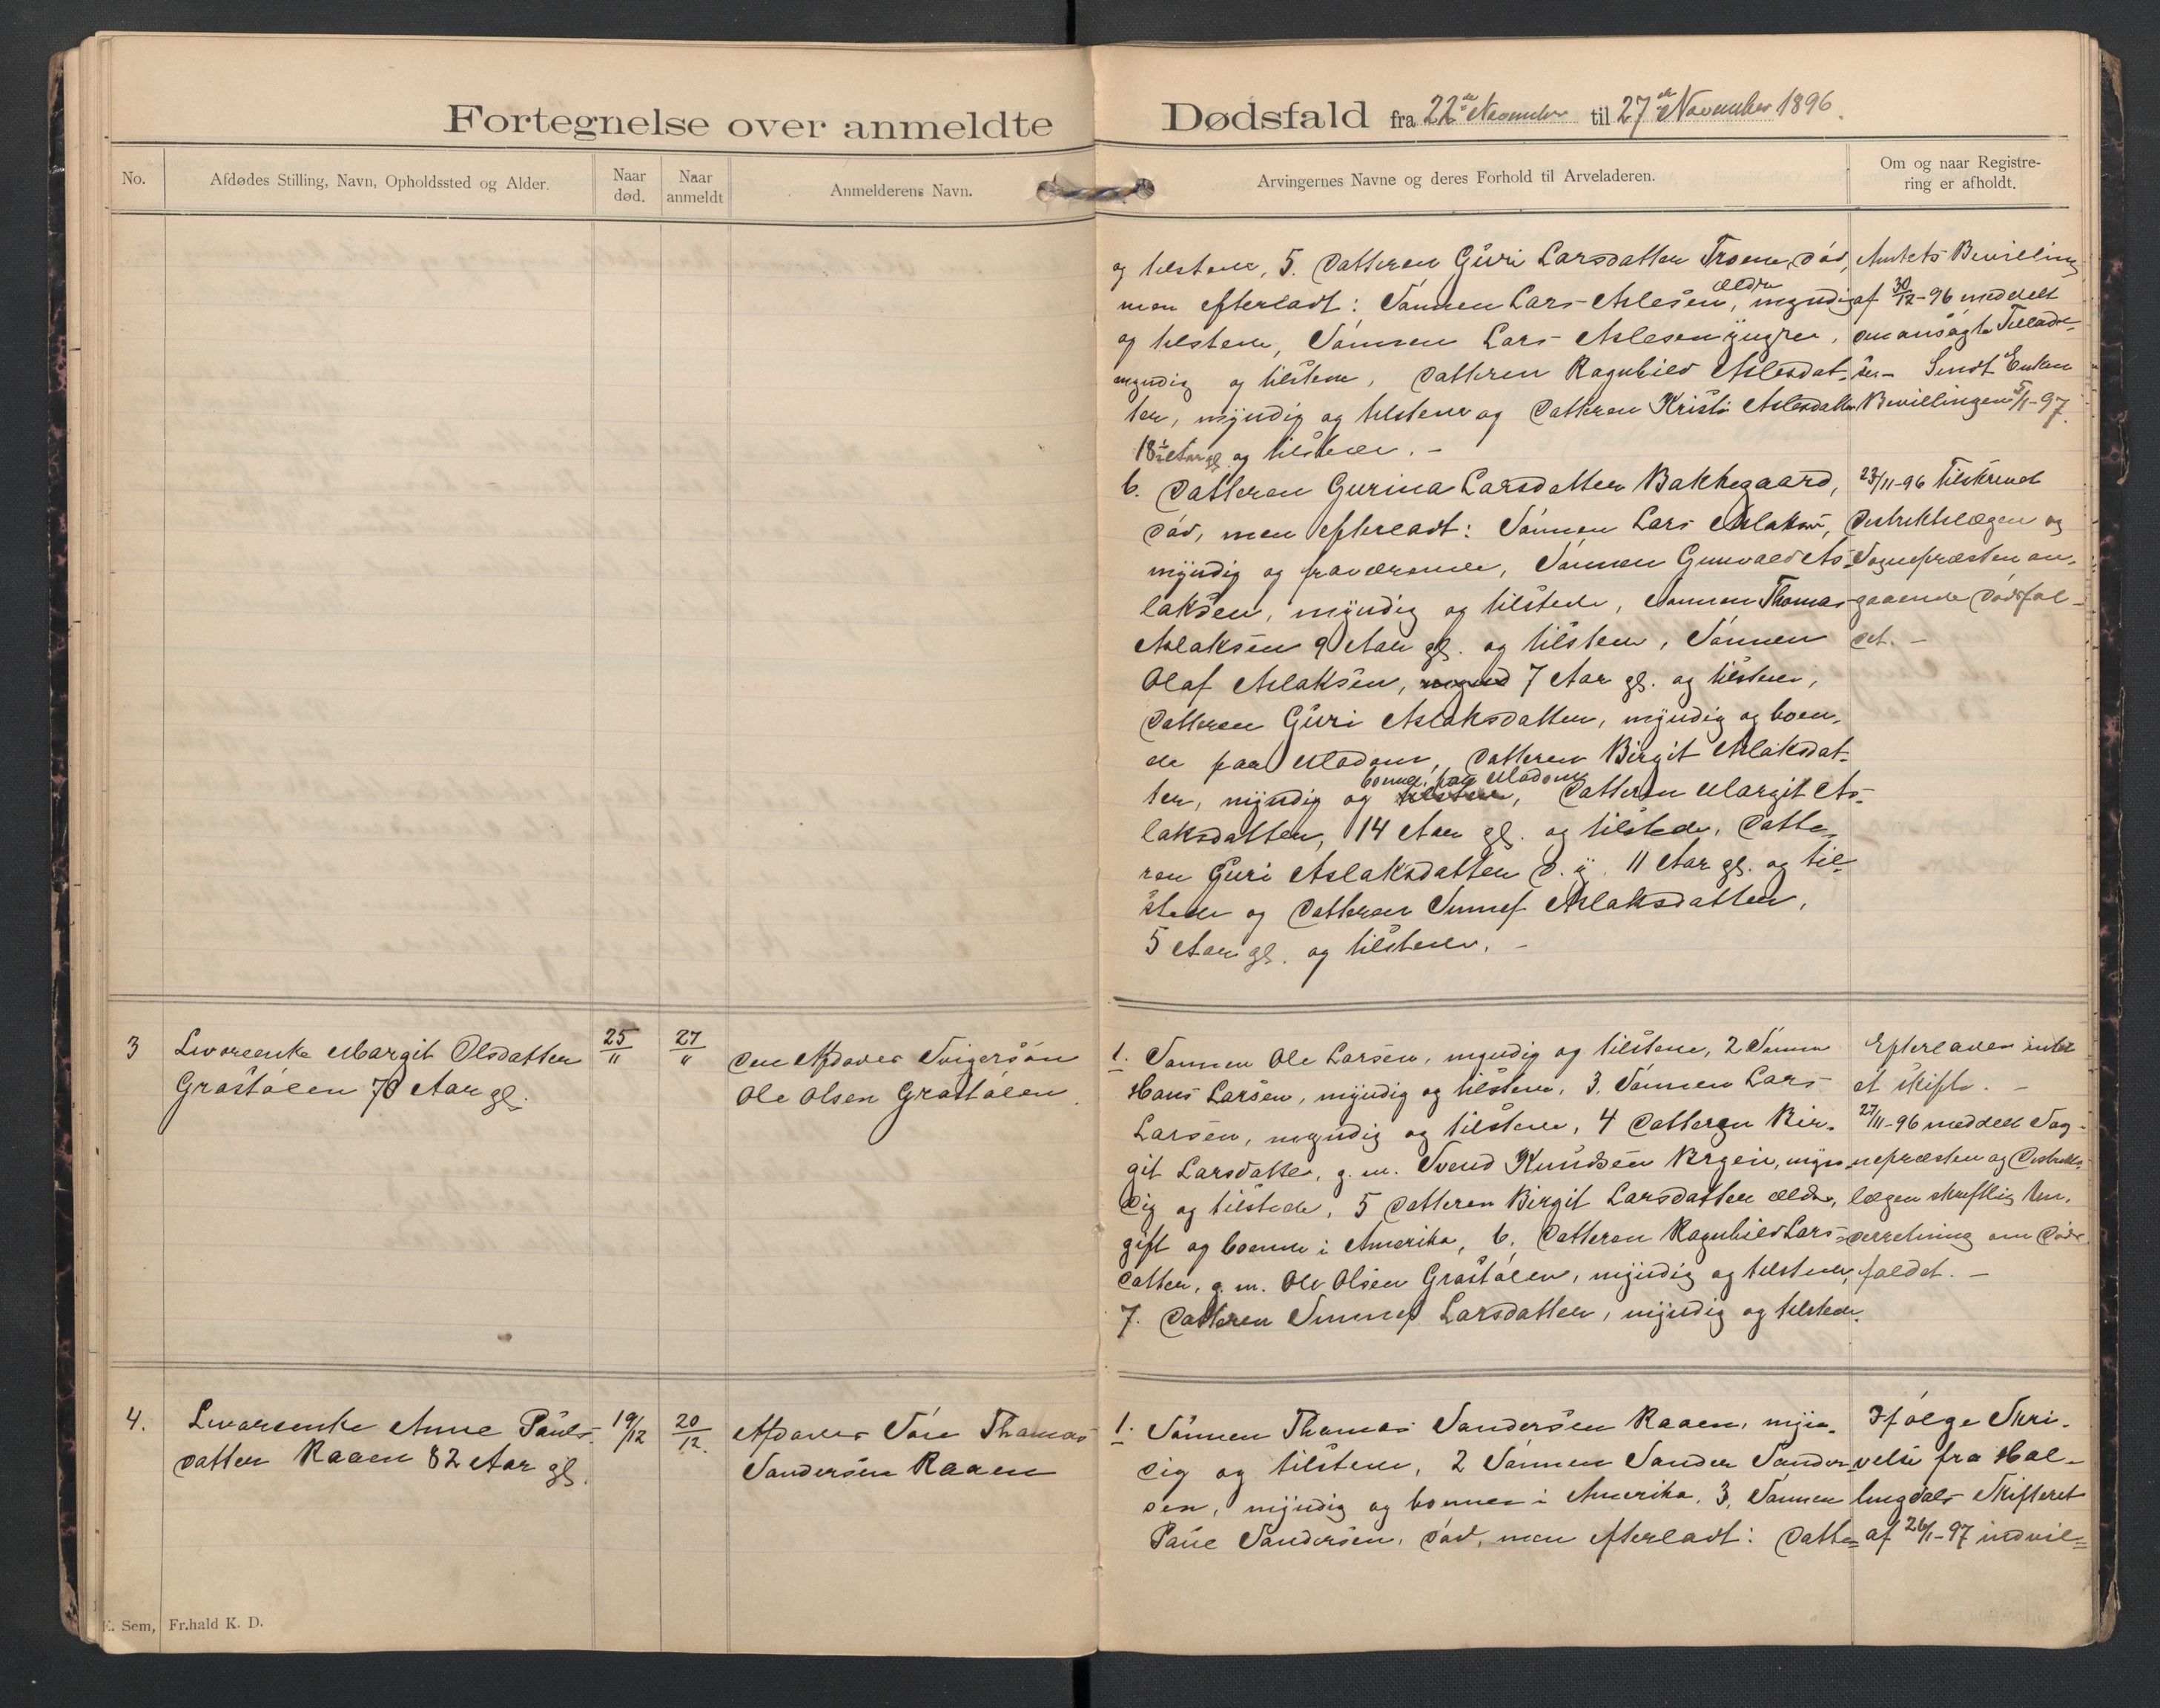 Fortegnelse over anmeldte Dødsfald fra 22de November til 27de November 1896.
No.
Afdødes Stilling, Navn, Opholdssted og Alder.
Naar død.
Naar anmeldt
Anmelderens Navn.
Arvingernes Navne og deres Forhold til Arveladeren.
Om og naar Registrering er afholdt.
og tilstede, 5. Datteren Guri Larsdatter Troen, død,
men efterladt: Sønnen Lars Aslesen ældre, myndig
og tilstede, Sønnen Lars Aslesen yngre,
myndig og tilstede, Datteren Ragnhild Aslesdat-
ter, myndig og tilstede og Datteren Kristi Aslesdatter
18½ Aar gl. og tilstede. –
6. Datteren Gurina Larsdatter Bakkegaard,
død, men efterladt: Sønnen Lars Aslaksen,
myndig og fraværende, Sønnen Gunvald As-
laksen, myndig og tilstede, Sønnen Thomas
Aslaksen 9 Aar gl. og tilstede, Sønnen
Olaf Aslaksen, mynd 7 Aar gl. og tilstede,
Datteren Guri Aslaksdatter, myndig og boen-
de paa Modum, Datteren Birgit Aslaksdat-
ter, myndig og tilstede boende paa Modum, Datteren Margit As-
laksdatter, 14 Aar gl. og tilstede, Datte-
ren Guri Aslaksdatter d. y. 11 Aar gl. og til-
stede og Datteren Sunnef Aslaksdatter,
5 Aar gl. og tilstede. –
Amtets Bevilling
af 30/12-96 meddelt
om ansøgte Tilladel-
se. – Sendt Enken
Bevillingen 5/1-97.
23/11-96 tilskrevet
Distriktslægen og
Sognepræsten an-
gaaende Dødsfal-
det. –
3
Levoreenke Margit Olsdatter
Grøstølen 70 Aar gl.
25/11
27/11
Den Afdødes Svigersøn
Ole Olsen Grøstølen.
1. Sønnen Ole Larsen, myndig og tilstede, 2 Sønnen
Hans Larsen, myndig og tilstede, 3. Sønnen Lars
Larsen, myndig og tilstede, 4 Datteren Bir-
git Larsdatter, g. m. Svend Knudsen Brgein, myn-
dig og tilstede, 5 Datteren Birgit Larsdatter ældre,
gift og boende i Amerika, 6. Datteren Ragnhild Lars-
datter, g. m. Ole Olsen Grøstølen, myndig og tilstede,
7. Datteren Sunnef Larsdatter, myndig og tilstede.
Efterlader intet
at skifte. –
27/11-96 meddelt Sog-
nepræsten og Distrikts-
lægen skriftlig Un-
derretning om Døds-
faldet. –
4.
Levorsenke Anne Pauls-
datter Raaen 82 Aar gl.
19/12
20/12.
Afdødes Søn Thomas
Sandersen Raaen
1. Sønnen Thomas Sandersen Raaen, myn-
dig og tilstede, 2 Sønnen Sander Sander-
sen, myndig og boende i Amerika, 3. Sønnen
Paul Sandersen, død, men efterladt: Datte-
Ifølge Skri-
velse fra Hal-
lingdals Skifteret
af 26/1-97 indvil-
E. Sem, Fr.hald K. D.